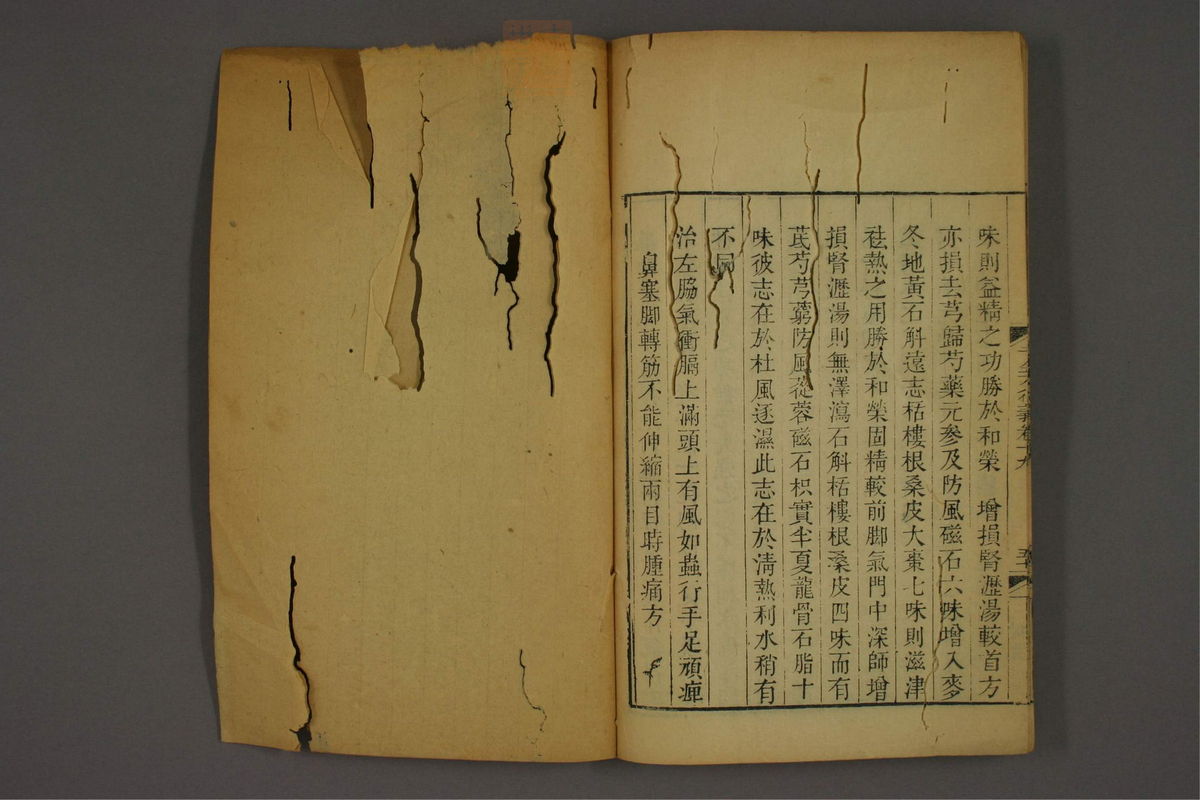 味則益精之功勝於和榮　增損腎瀝湯較首方
亦損去芎歸芍藥元參及防風磁石六味增入麥
冬地黃石斛遠志栝樓根桑皮大棗七味則滋津
祛熱之用勝於和榮固精較前脚氣門中深師增
損腎瀝湯則無澤瀉石斛栝樓根桑皮四味而有
芪芍芎藭防風蓯蓉磁石枳實半夏龍骨石脂十
味彼志在於杜風逐濕此志在於清熱利水稍有
不同
治左脇氣衝膈上滿頭上有風如蟲行手足頑痺
鼻塞脚轉筋不能伸縮兩目時腫痛方